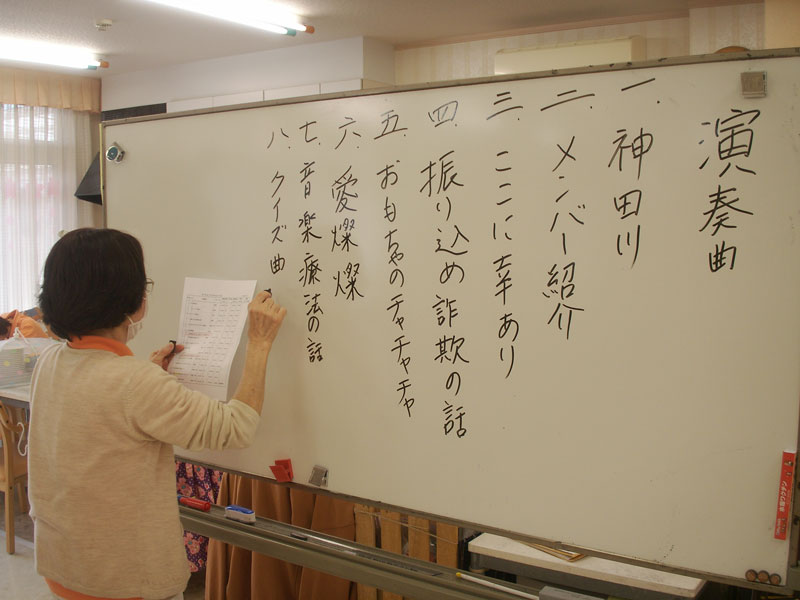 演奏曲
一. 神田川
二. メンバー紹介
三. ここに幸あり
四. 振り込め詐欺の話
五. おもちゃのチャチャチャ
六. 愛燦燦
七. 音楽療法の話
八. クイズ曲